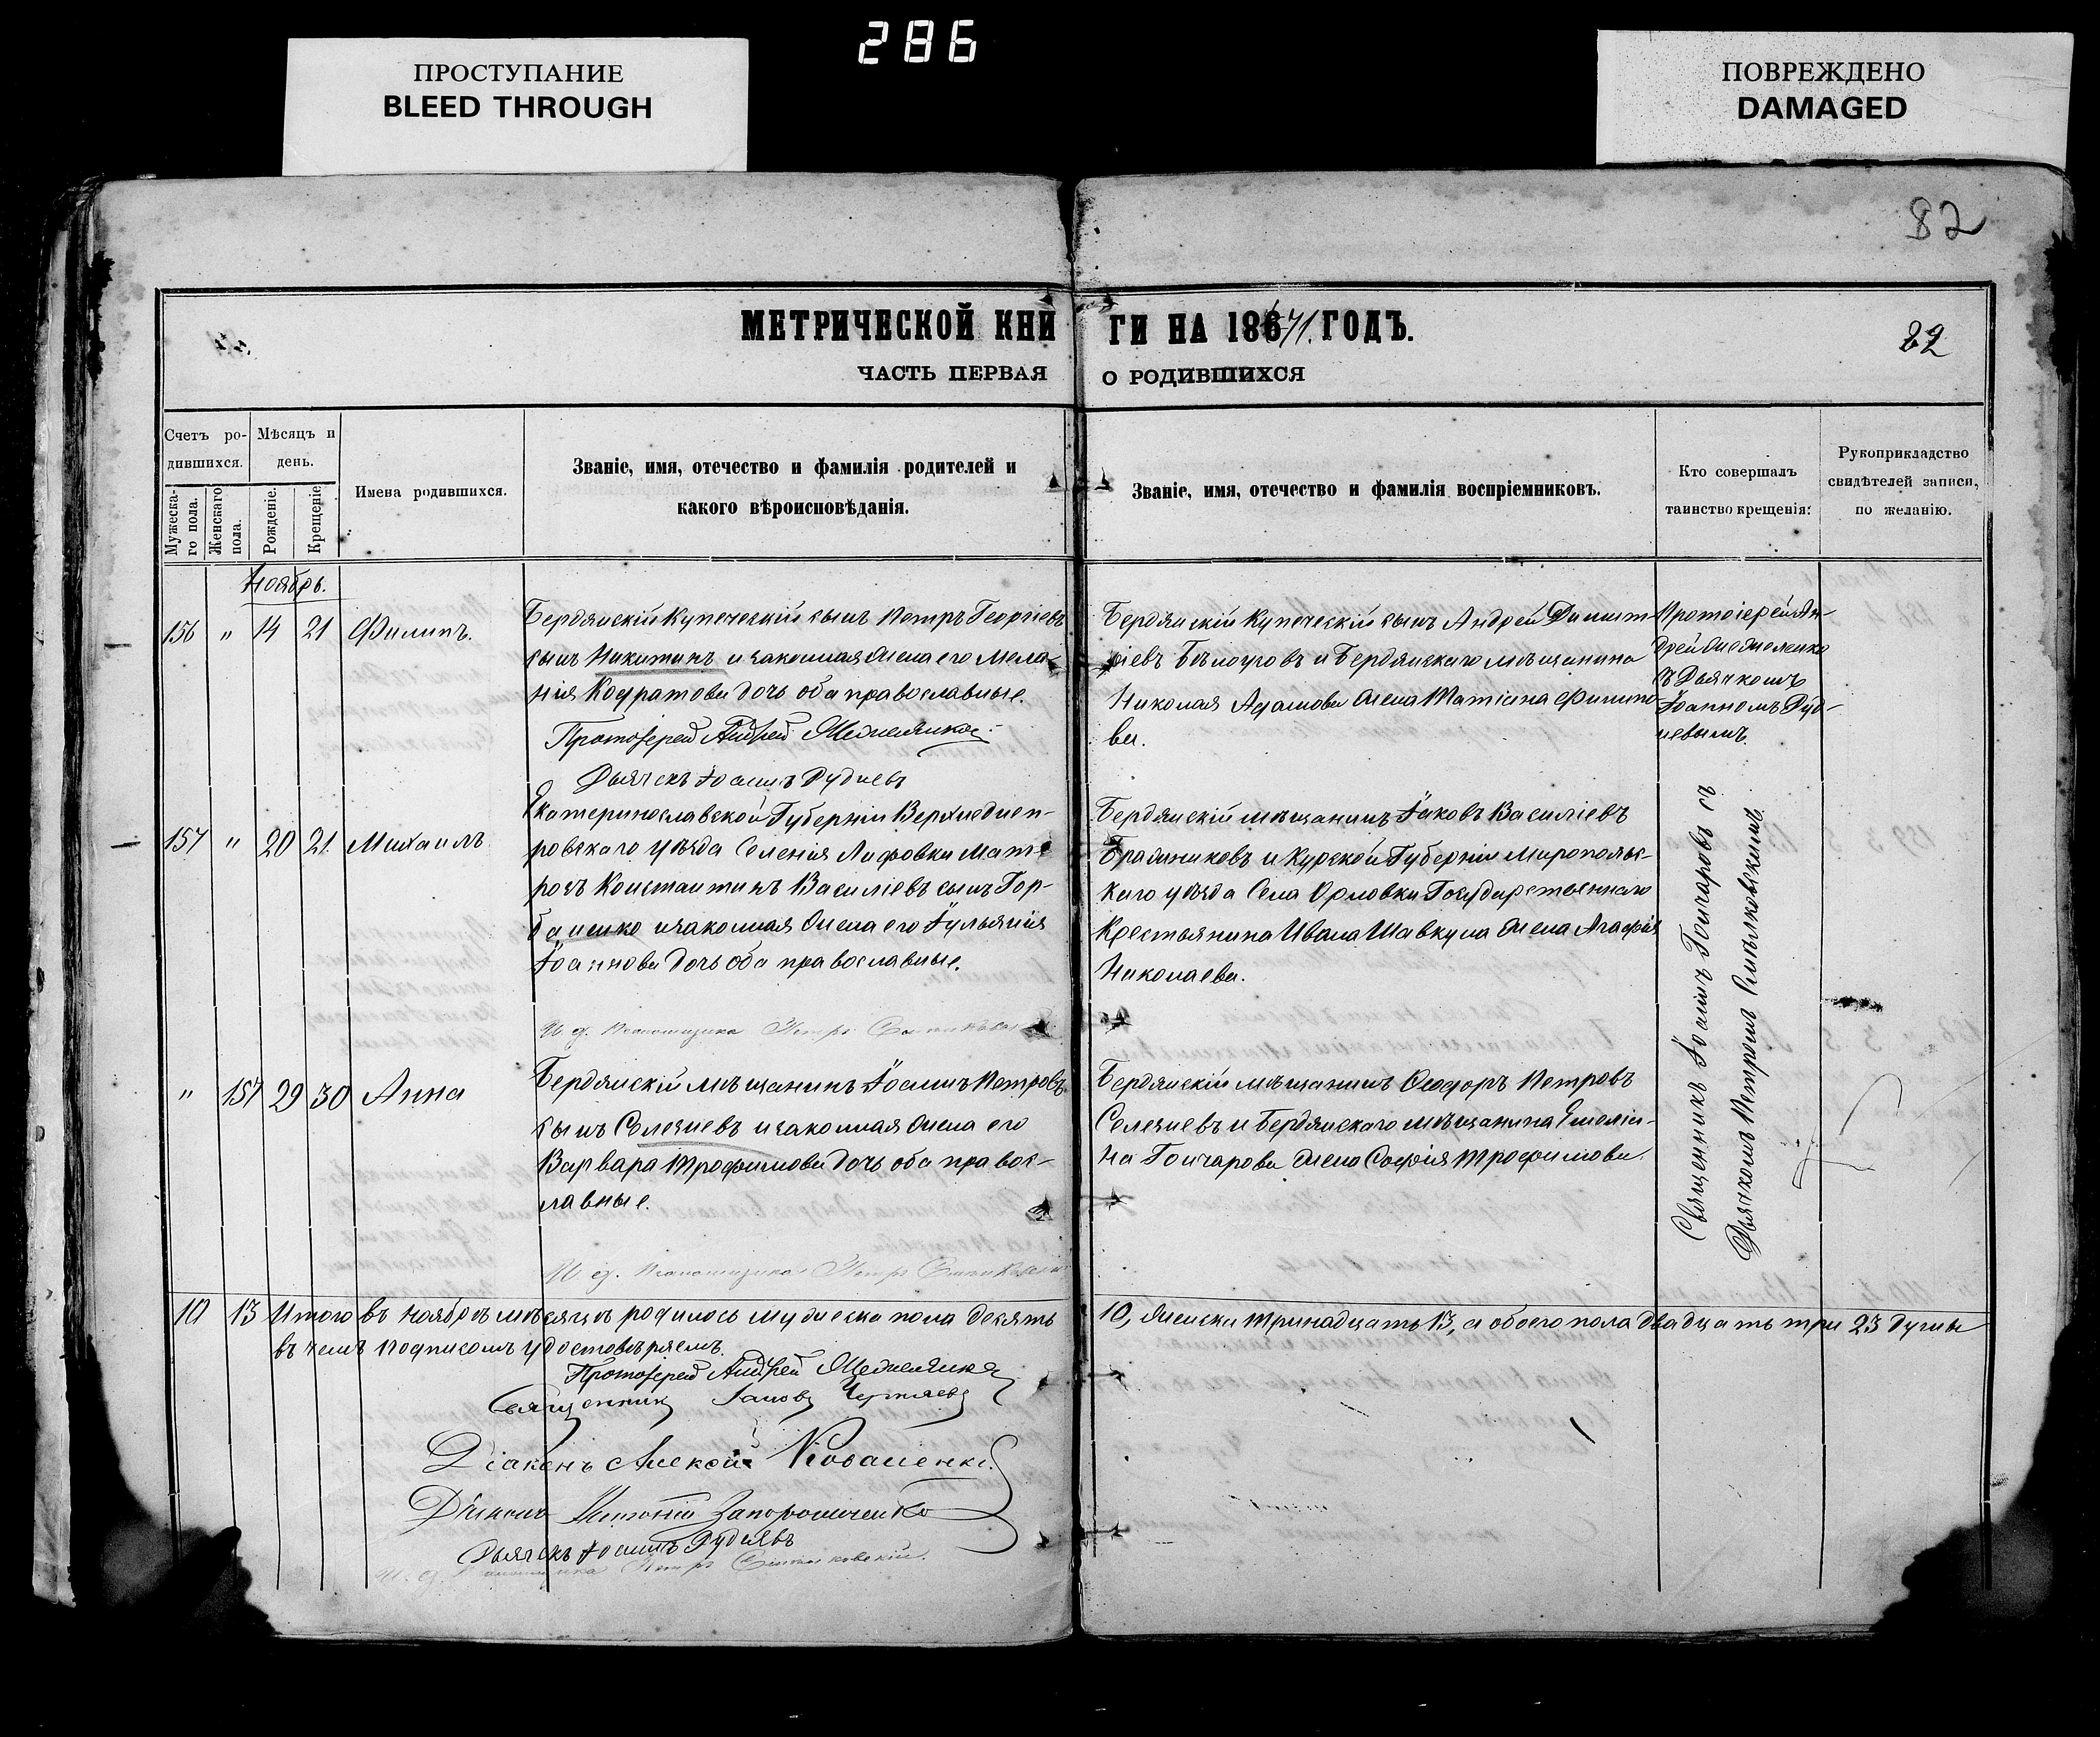 286
ПРОСТУПАНИЕ
BLEED THROUGH
ПОВРЕЖДЕНО
DAMAGED
82
МЕТРИЧЕСКОЙ КНИ ГИ НА 1871 ГОДЪ.
82
ЧАСТЬ ПЕРВАЯ О РОДИВШИХСЯ
Счетъ ро-
дившихся.
Мужеска-
го пола.
Женскаго
пола.
Мѣсяцъ и
день.
Рожденіе.
Крещеніе
Имена родившихся.
Званіе, имя, отечество и фамилія родителей и
какого вѣроисповѣданія.
Званіе, имя, отечество и фамилія воспріемниковъ.
Кто совершалъ
таинство крещенія:
Рукоприкладство
свидѣтелей записи,
по желанію.
Ноябрь.
156 " 14 21 Филипъ.
Бердянскій Купеческій сынъ Петръ Георгіевъ
сынъ Никитинъ и законная жена его Мела-
нія Кодратова дочь оба православные.
Протоіерей Андрей
Дьячекъ Іоаннъ Рудневъ
Бердянскій Купеческій сынъ Андрей Димит-
ріевъ Бѣлоусовъ и Бердянскаго мѣщанина
Николая Адамова жена Татіана Филипо-
ва.
Протоіерей Ан-
дрей
съ Дьячкомъ
Іоанномъ Руд-
невымъ.
157 " 20 21 Михаилъ
Екатеринославской Губерніи Верхнеднеп-
ровскаго уѣзда Селенія Мат-
розъ Константинъ Василіевъ сынъ Гор-
баненко и законная жена его Іульянія
Іоаннова дочь оба православные.
И. д. Псаломщика Петръ
Бердянскій мѣщанинъ Іаковъ Василіевъ
и Курской Губерніи Миропольс-
каго уѣзда Села Орловки Государственнаго
Крестьянина Ивана Шавкуна жена Агафія
Николаева.
" 157 29 30 Анна
Бердянскій мѣщанинъ Іоаннъ Петровъ
сынъ Селезневъ и законная жена его
Варвара Трофимова дочь оба правос-
лавные.
И. д. Псаломщика Петръ
Бердянскій мѣщанинъ Феодоръ Петровъ
Селезневъ и Бердянскаго мѣщанина Емеліа-
на Гончарова жена Софія Трофимова.
Священникъ Іоаннъ Гончаровъ съ
Дьячкомъ Петромъ
10 13 Итого въ ноябрѣ мѣсяцѣ родилось мужеска пола десять 10, женска тринадцать 13, а обоего пола двадцать три 23 души
въ чемъ подписомъ удостовѣряемъ.
Протоіерей Андрей
Священникъ
Діаконъ Алексій Коваленко
Діаконъ Запорожченко
Дьячекъ Іоаннъ Рудневъ
И. д. Псаломщика Петръ